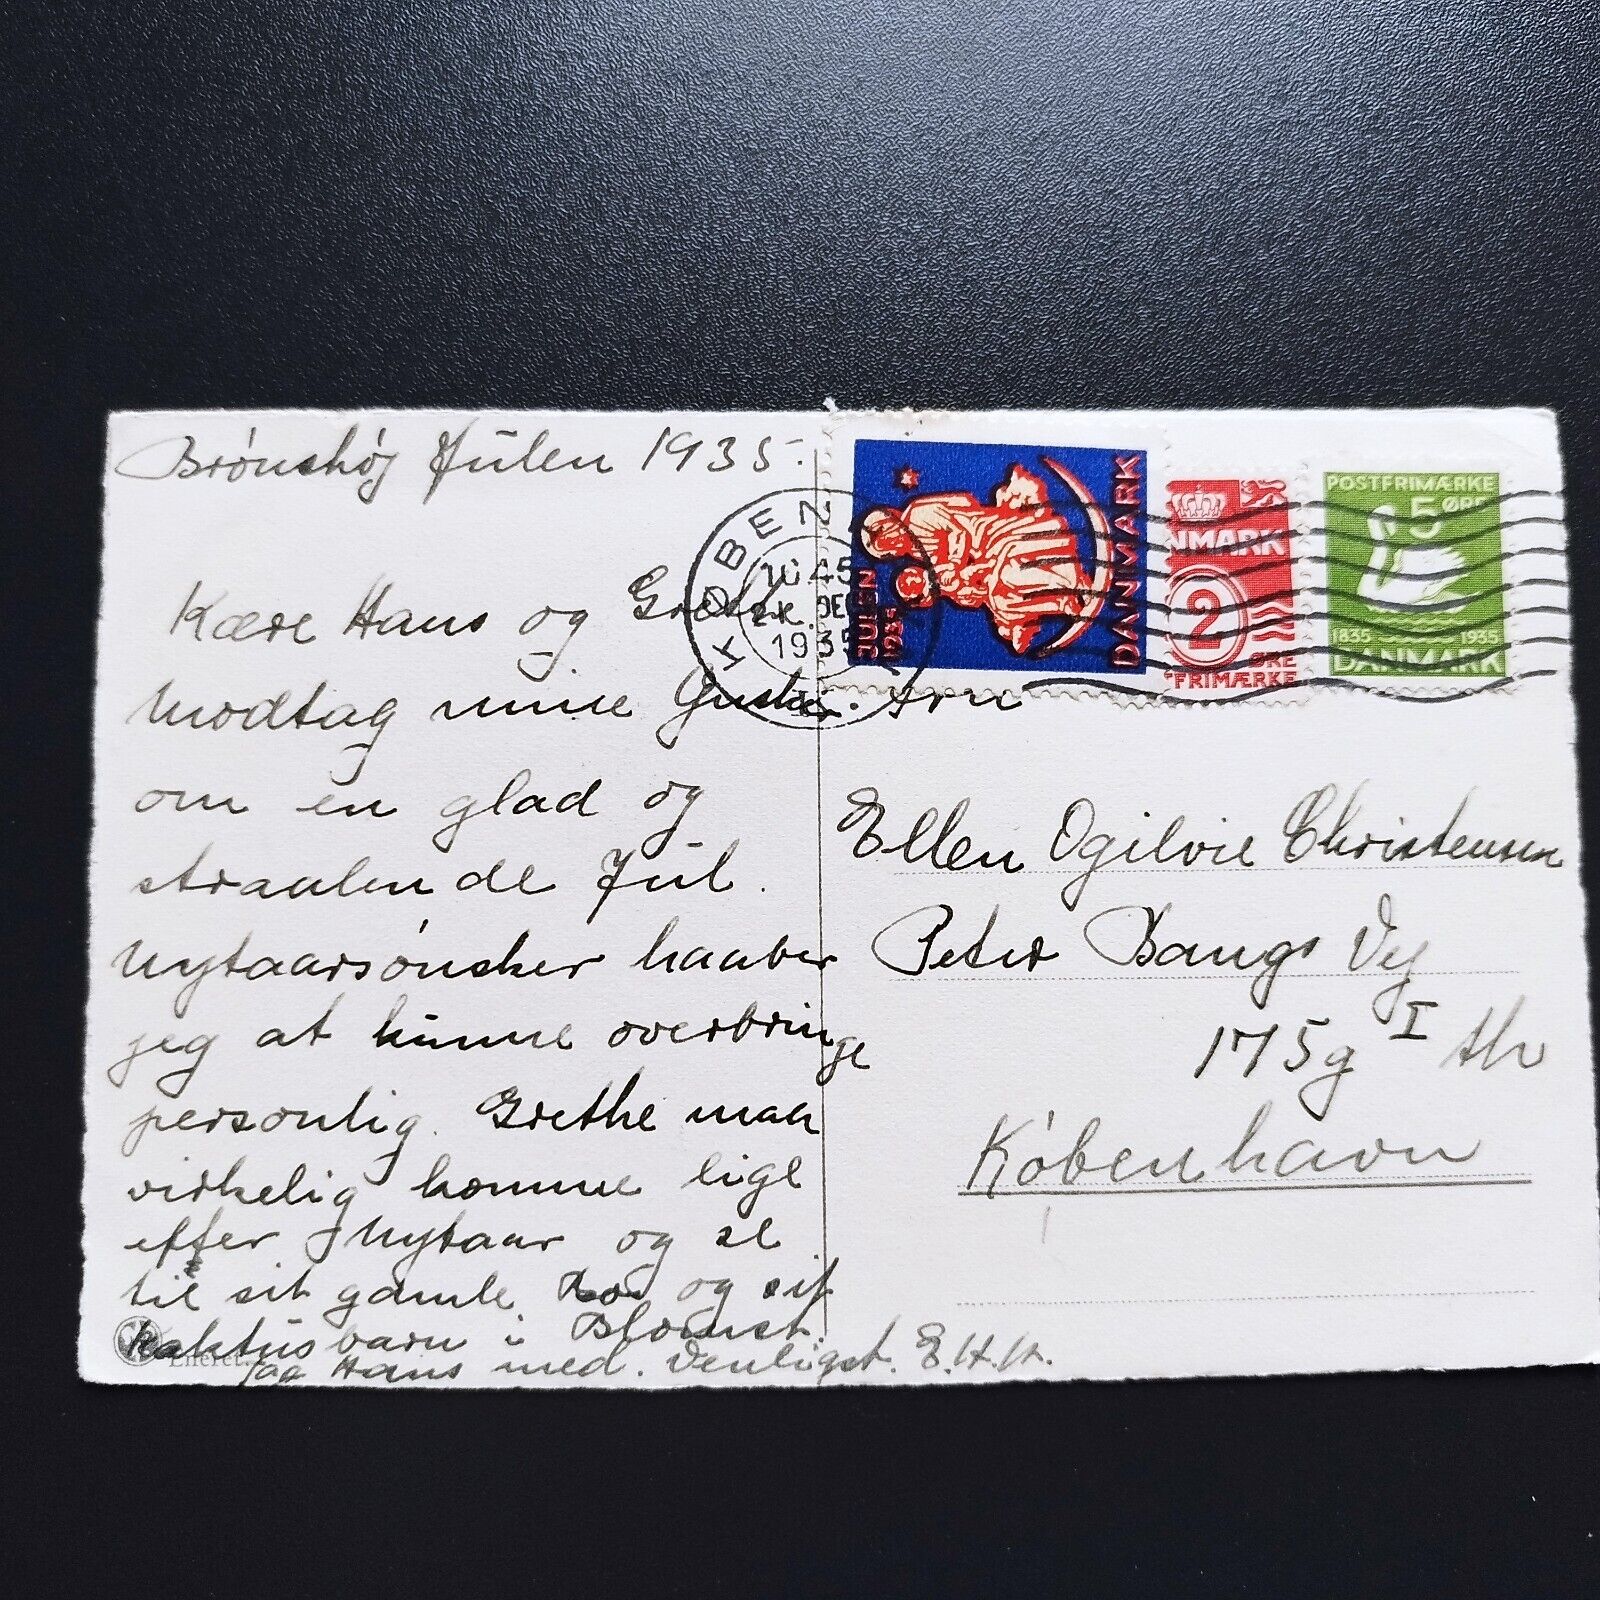 Brønshøj Julen 1935.
Kære Hans og Grethe
Modtag mine Ønsker
om en glad og
straalende Jul.
Nytaarsønsker haaber
jeg at kunne overbringe
personlig. Grethe maa
virkelig komme lige
efter Nytaar og se
til sit gamle og sit
kaktusbarn i Blomst.
Tag Hans med. Venligst. E.H.H.
Eneret.
KØBENHAVN
10.45
DEC
1935
JULEN
1935
DANMARK
DANMARK
2
ØRE
FRIMÆRKE
POSTFRIMÆRKE
5 ØRE
1835 1935
DANMARK
Ellen Ogilvie Christensen
Peter Bangs Vej
175g I th
København